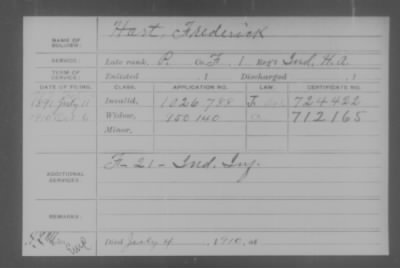 NAME OF SOLDIER: Hart, Frederick
SERVICE: Late rank, P. Co. F, 1 Reg't Ind. H.A.
TERM OF SERVICE: Enlisted , 1 Discharged , 1
DATE OF FILING. CLASS. APPLICATION NO. LAW. CERTIFICATE NO.
1891 July 11 Invalid, 1026788 724422
1910 6 Widow, 950140 712165
Minor,
ADDITIONAL SERVICES: F-21- Ind. Inf.
REMARKS:
Died July 4, 1910, at